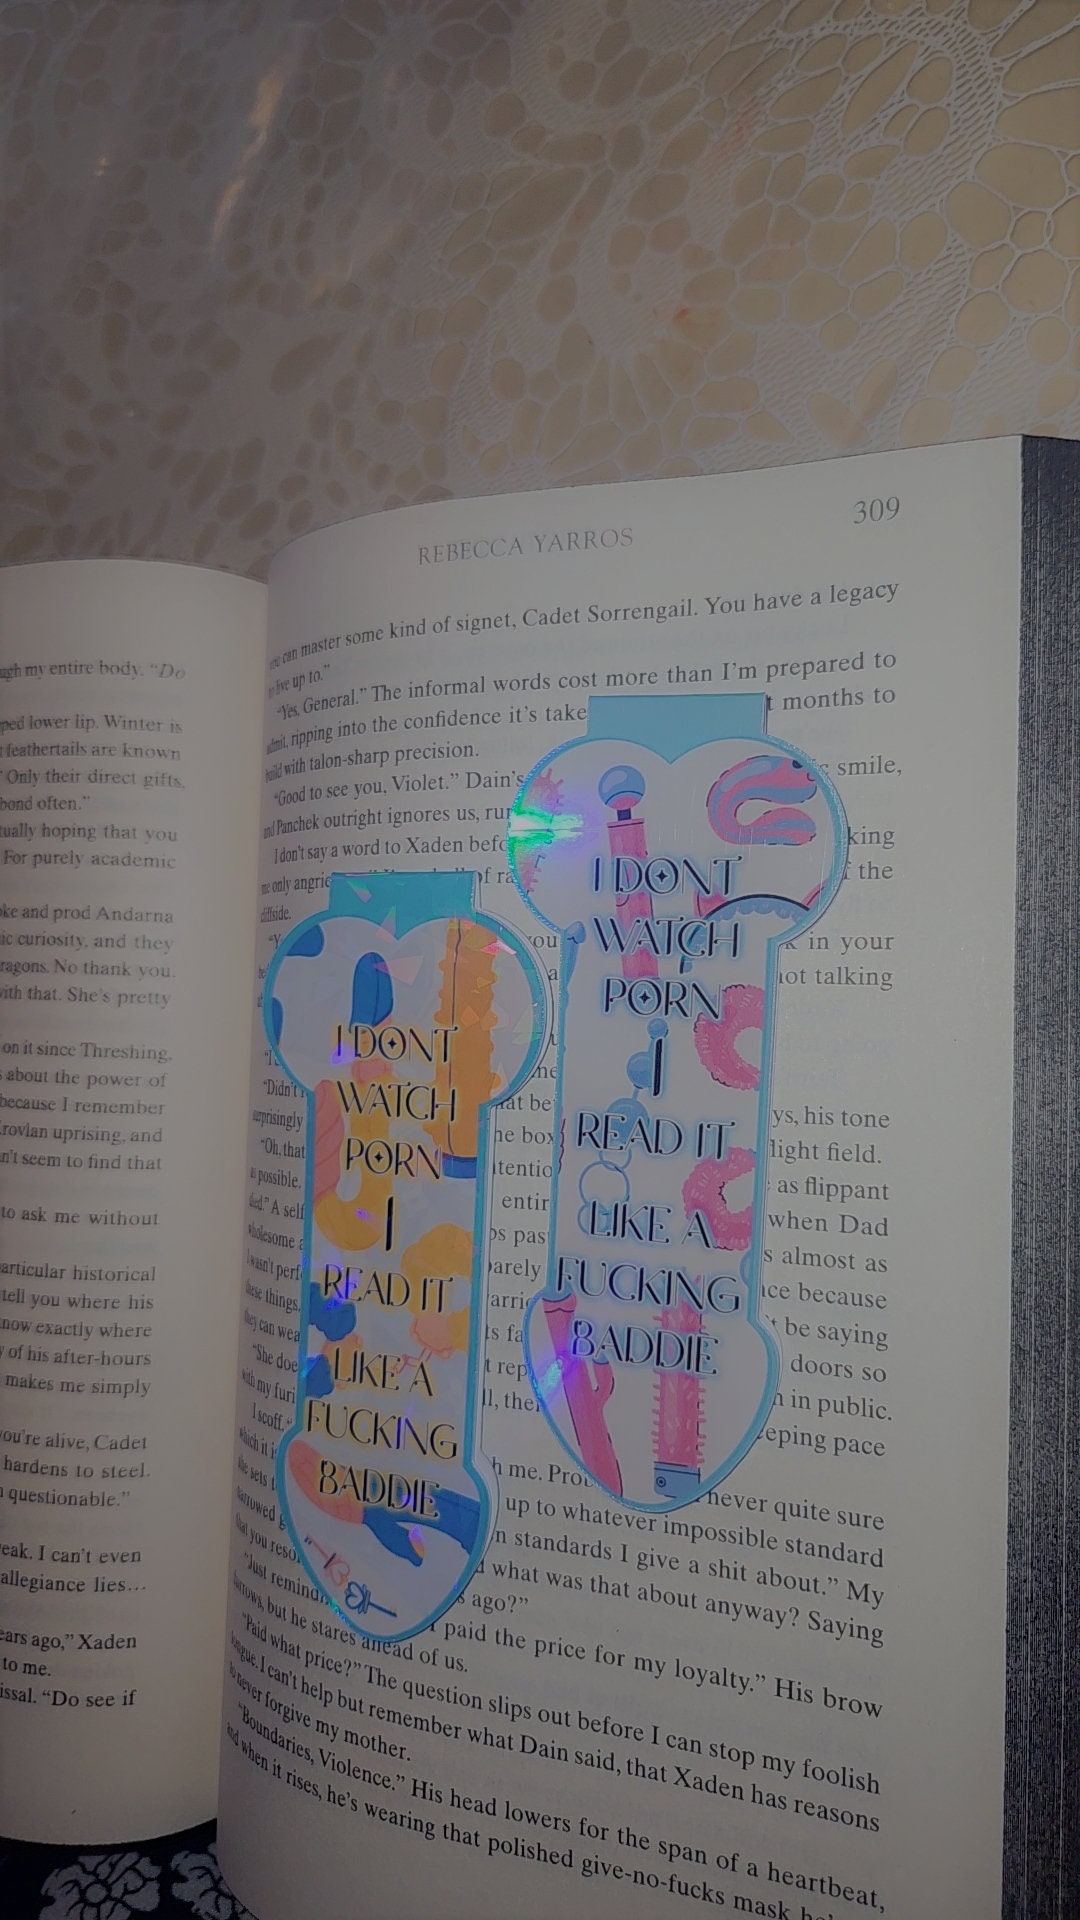 ugh my entire body. "Do
ped lower lip. Winter is
feathertails are known
Only their direct gifts,
bond often."
tually hoping that you
For purely academic
oke and prod Andarna
ic curiosity, and they
ragons. No thank you.
with that. She's pretty
on it since Threshing,
about the power of
because I remember
rovlan uprising, and
n't seem to find that
to ask me without
articular historical
tell you where his
now exactly where
y of his after-hours
makes me simply
you're alive, Cadet
hardens to steel.
questionable."
eak. I can't even
allegiance lies...
ears ago," Xaden
to me.
issal. "Do see if
REBECCA YARROS
309
can master some kind of signet, Cadet Sorrengail. You have a legacy
live up to."
"Yes, General." The informal words cost more than I'm prepared to
admit, ripping into the confidence it's take t months to
build with talon-sharp precision.
"Good to see you, Violet." Dain's smile,
and Panchek outright ignores us, ru king
I don't say a word to Xaden befo the
me only angrie of ra
cliffside.
"Y you k in your
not talking
"Didn't hat be ys, his tone
surprisingly he box light field.
"Oh, that tentio as flippant
as possible. entir when Dad
died." A self s pas s almost as
wholesome barely ce because
I wasn't perf arri be saying
these things, ts fa doors so
they can wea t rep in public.
"She doe ll, the eeping pace
with my furi
I scoff.
which it i h me. Pro never quite sure
she sets t up to whatever impossible standard
narrowed n standards I give a shit about." My
that you reso what was that about anyway? Saying
"Just remind s ago?"
paid the price for my loyalty." His brow
furrows, but he stares ahead of us.
"Paid what price?" The question slips out before I can stop my foolish
tongue. I can't help but remember what Dain said, that Xaden has reasons
to never forgive my mother.
"Boundaries, Violence." His head lowers for the span of a heartbeat,
and when it rises, he's wearing that polished give-no-fucks mask he
I DONT
WATCH
PORN
I
READ IT
LIKE A
FUCKING
BADDIE
I DONT
WATCH
PORN
I
READ IT
LIKE A
FUCKING
BADDIE